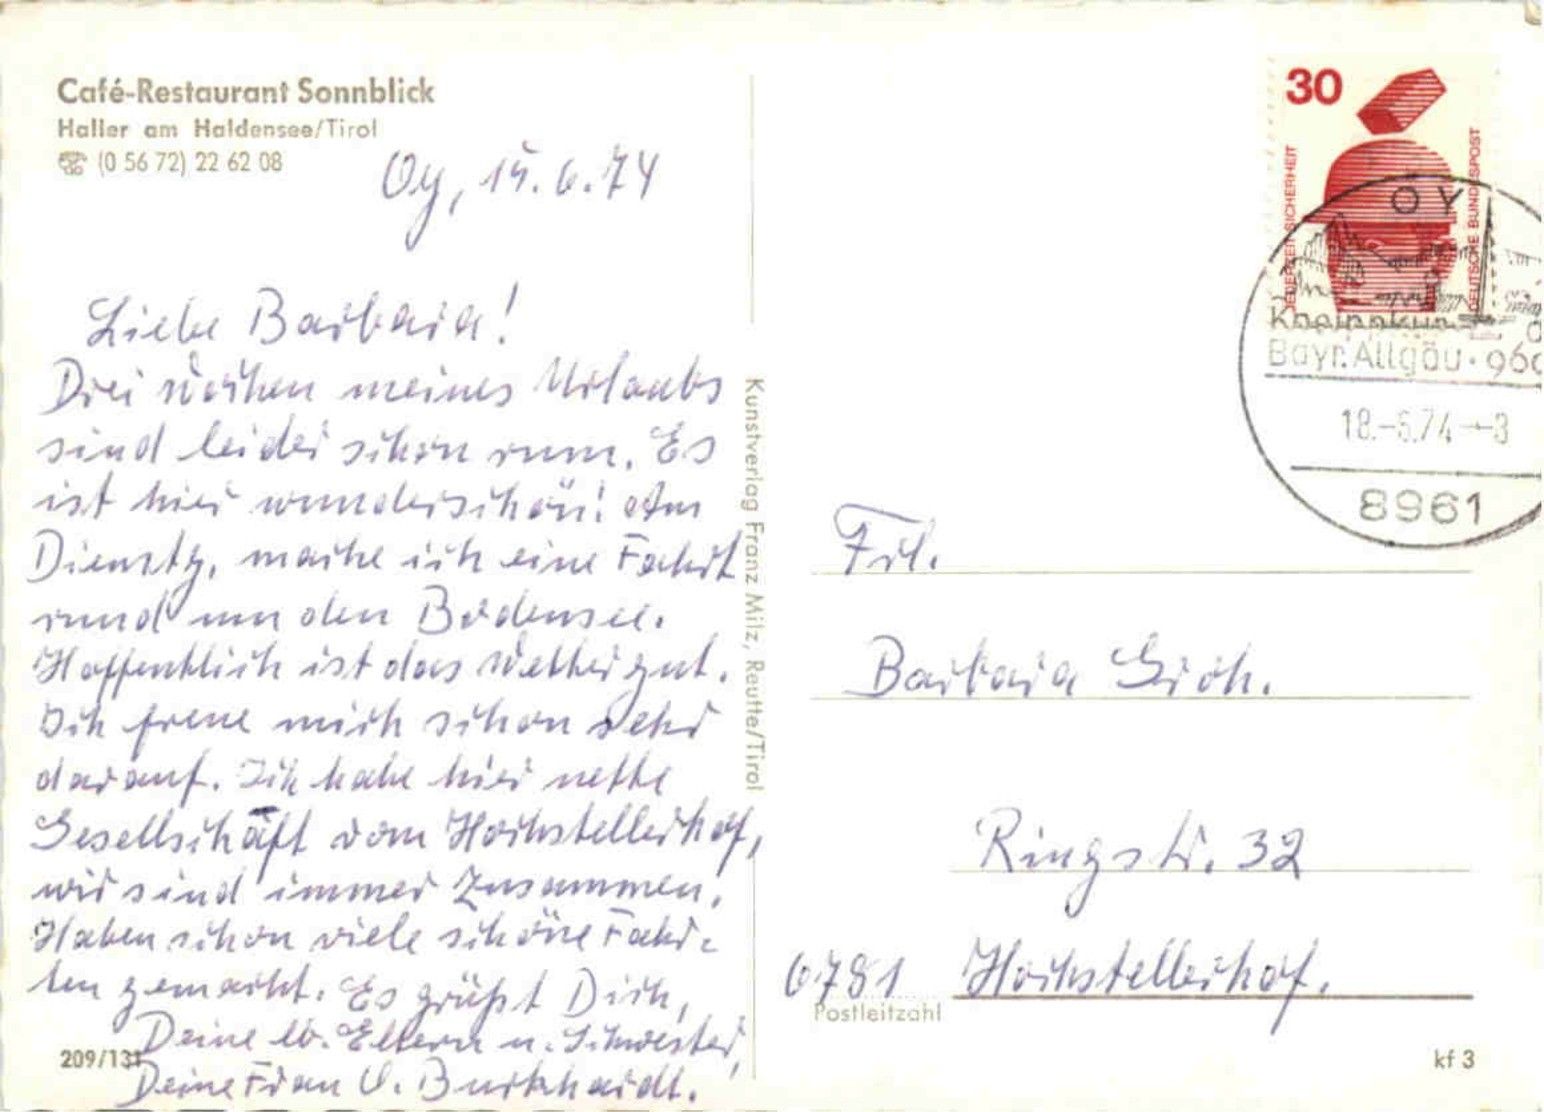 Café-Restaurant Sonnblick
Haller am Haldensee/Tirol
☏ (0 56 72) 22 62 08
Oy, 15.6.74
Liebe Barbara!
Drei Wochen meines Urlaubs
sind leider schon rum. Es
ist hier wunderschön! Am
Dienstg, mache ich eine Fahrt
rund um den Bodensee.
Hoffentlich ist das Wetter gut.
Ich freue mich schon sehr
darauf. Ich habe hier nette
Gesellschaft vom Höchstellerhof,
wir sind immer zusammen.
Haben schon viele schöne Fahr-
ten gemacht. Es grüßt Dich,
Deine lb. Eltern u. Schwester,
Deine Frau O. Burkhardt.
209/131
Kunstverlag Franz Milz, Reutte/Tirol
30
JEDERZEIT SICHERHEIT
DEUTSCHE BUNDESPOST
OY
Kneippkur
Bayr. Allgäu · 960
18.-6.74--8
8961
Frl.
Barbara
Ringstr. 32
6781 Höchstellerhof.
Postleitzahl
kf 3